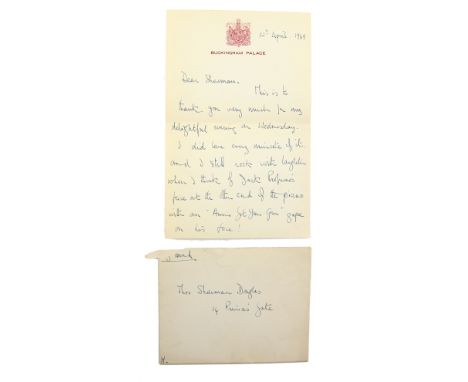 BUCKINGHAM PALACE
April 1949
Dear Sharman.
This is to
thank you very much for my
delightful evening on Wednesday.
I did love every minute of it
and I still rock with laughter
when I think of Jack Profumo's
face at the other end of the piano
with an "Annie Get Your Gun" gape
on his face!
Miss Sharman Douglas
14 Prince's Gate
M.